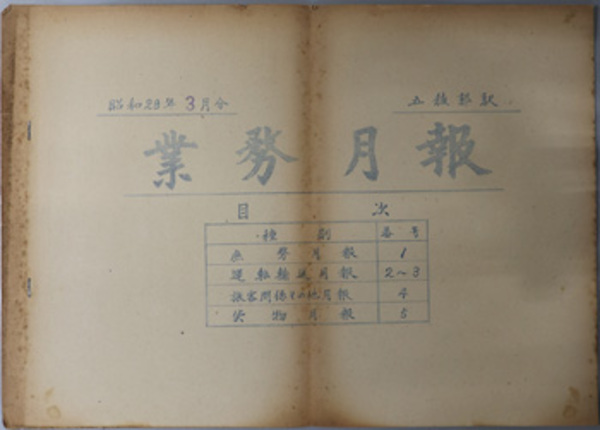 昭和28年3月分
五稜郭駅
業務月報
目次
種別 番号
庶務月報 1
運転輸送月報 2〜3
旅客関係その他月報 4
貨物月報 5